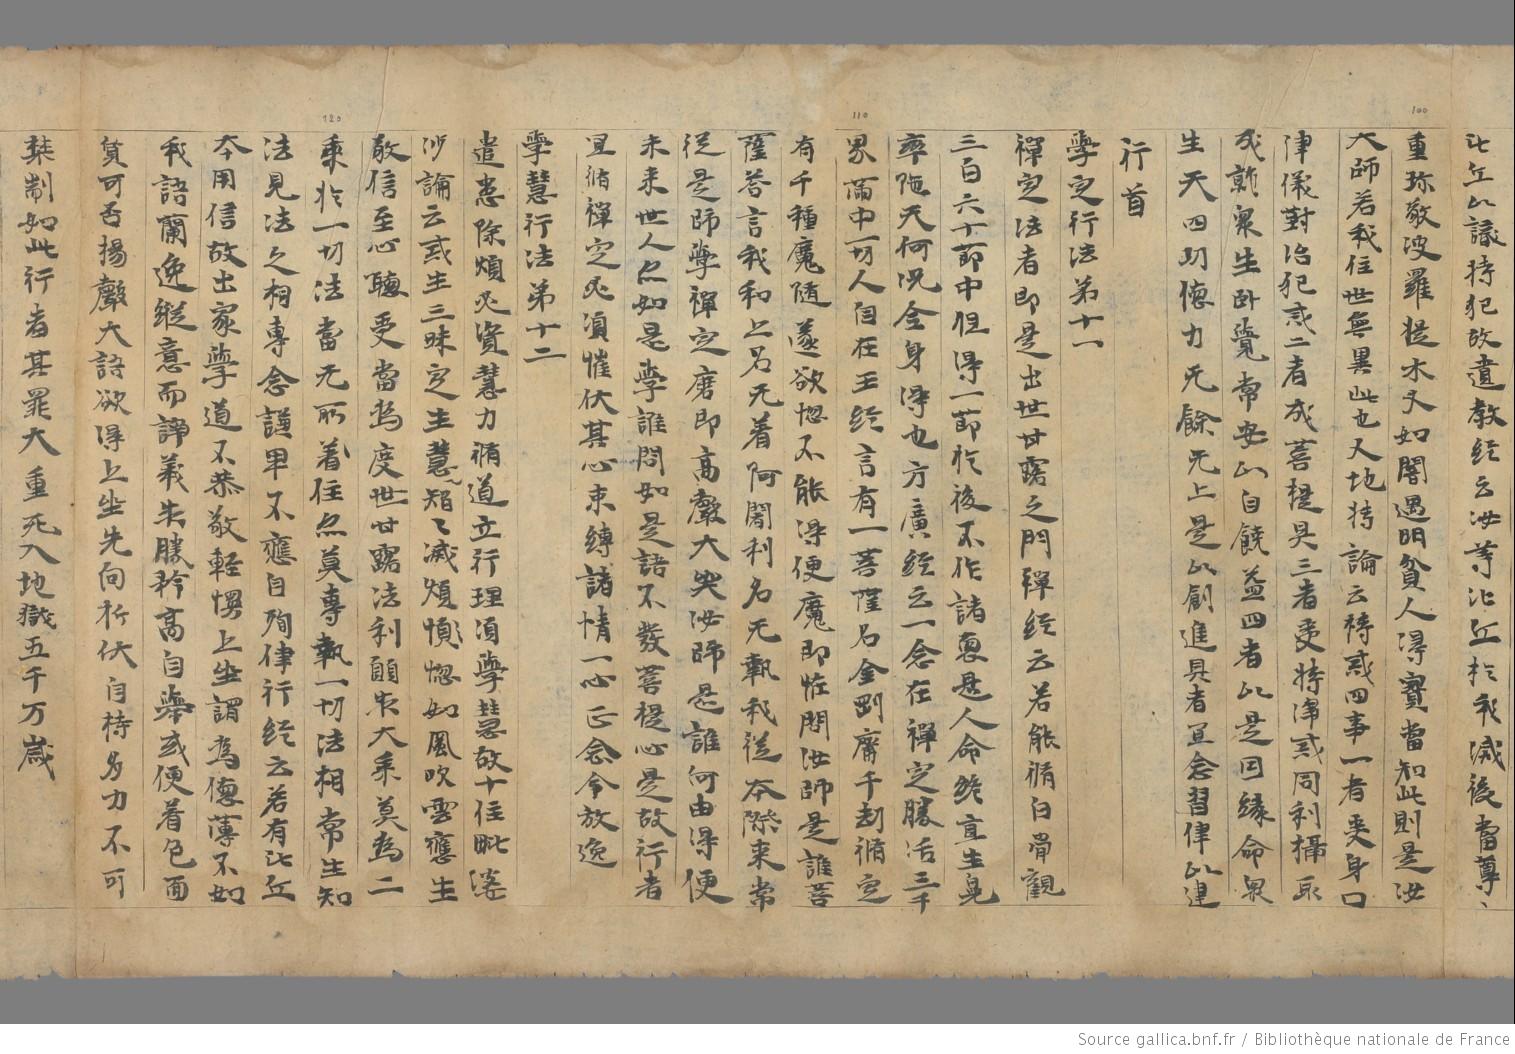 100
110
120
比丘以議持犯故遺教經云汝等比丘於我滅後當尊〻
重珎敬波羅提木叉如闇遇明貧人得寶當知此則是汝
大師若我住世無異此也又地持論云持戒四事一者受身口
律儀對治犯戒二者成菩提具三者受持淨戒同利攝取
成就衆生卧覺常安以自饒益四者以是因緣命終
生天四功德力无餘无上是以創進具者宜念習律以建
行首
學定行法第十一
禪定法者即是出世甘露之門禪經云若能脩白骨觀
三百六十節中但得一節於後不作諸惡是人命終直生兜
率陁天何況全身得也方廣經云一念在禪定勝活三千
界滿中一切人自在王經言有一菩薩名金剛齊千劫脩定
有千種魔隨逐欲惚不能得便魔即恠問汝師是誰菩
薩答言我和上名无着阿闍利名无執我從本際來常
從是師學禪定魔即高聲大哭汝師是誰何由得便
未來世人忽如是學誰問如是語不發菩提心是故行者
宜脩禪定必須摧伏其心束縛諸情一心正念令放逸
學慧行法第十二
遣恚除煩必資慧力脩道立行理須學慧故十住毗婆
沙論云戒生三昧定生慧智〻滅煩惱惚如風吹雲應生
敬信至心聽受當為度世甘露法利願求大乘莫為二
乘於一切法當无所着住忽莫專執一切法相常生知
法見法之相專念謙卑不應自殉律行經云若有比丘
本用信故出家學道不恭敬輕慢上坐謂為德薄不如
我語蘭逸縱意而諍義失勝矜高自舉或便着色面
貨可否揚聲大語欲得上坐先向折伏自持多力不可
禁制如此行者其罪大重死入地獄五千万歲
Source gallica.bnf.fr / Bibliothèque nationale de France